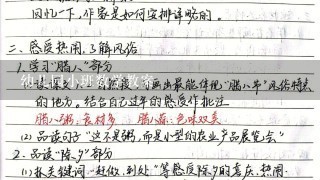 回忆一下，作家是如何安排详略的。
二、感受热闹，了解风俗
1. 学习“腊八”部分
画出最能体现“腊八节”风俗特点
的地方。结合自己过年的感受作批注
腊八粥：食材多 腊八蒜：色味双美
(2) 品读句子“这不是粥，而是小型的农业产品展览会”
2. 品读“除夕”部分
(1) 抓关键词 “赶做、到处”等感受除夕的喜庆、热闹
幼儿园小班教学教案